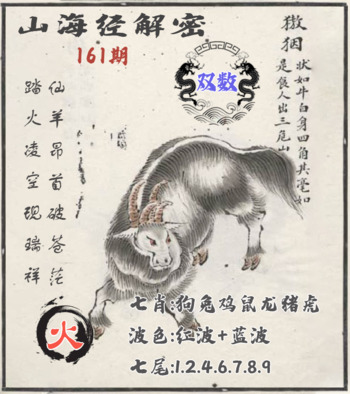 山海经解密
161期
双数
獓狠
状如牛白身四角其毫如
是食人出三危山
仙羊昂首破苍茫
踏火凌空现瑞祥
火
七肖:狗兔鸡鼠龙猪虎
波色:红波+蓝波
七尾:1.2.4.6.7.8.9